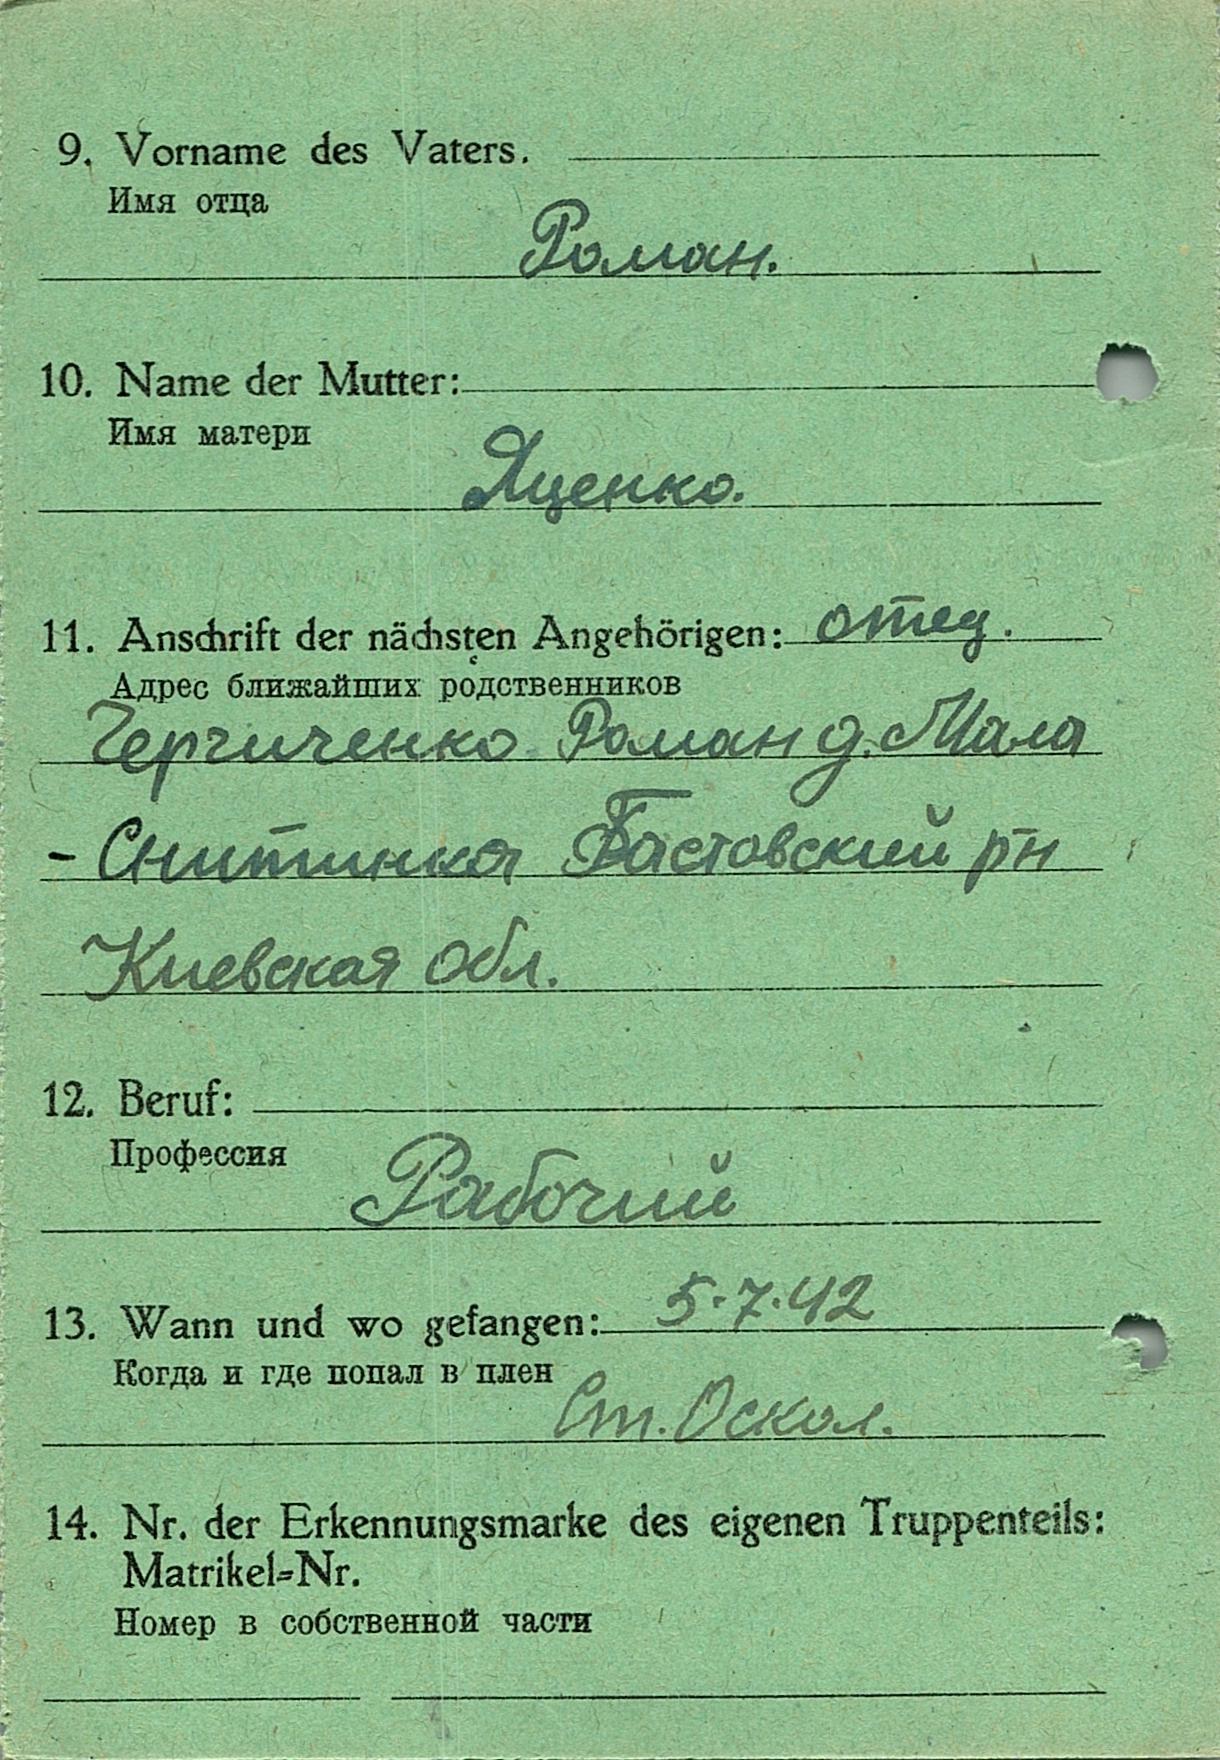 9. Vorname des Vaters.
Имя отца
Роман.
10. Name der Mutter:
Имя матери
Яценко.
11. Anschrift der nächsten Angehörigen: отец.
Адрес ближайших родственников
Роман д. Мала
- Снитинка Бастовский рн
Киевская обл.
12. Beruf:
Профессия
Рабочий
13. Wann und wo gefangen: 5.7.42
Когда и где попал в плен
Ст. Оскол.
14. Nr. der Erkennungsmarke des eigenen Truppenteils:
Matrikel-Nr.
Номер в собственной части